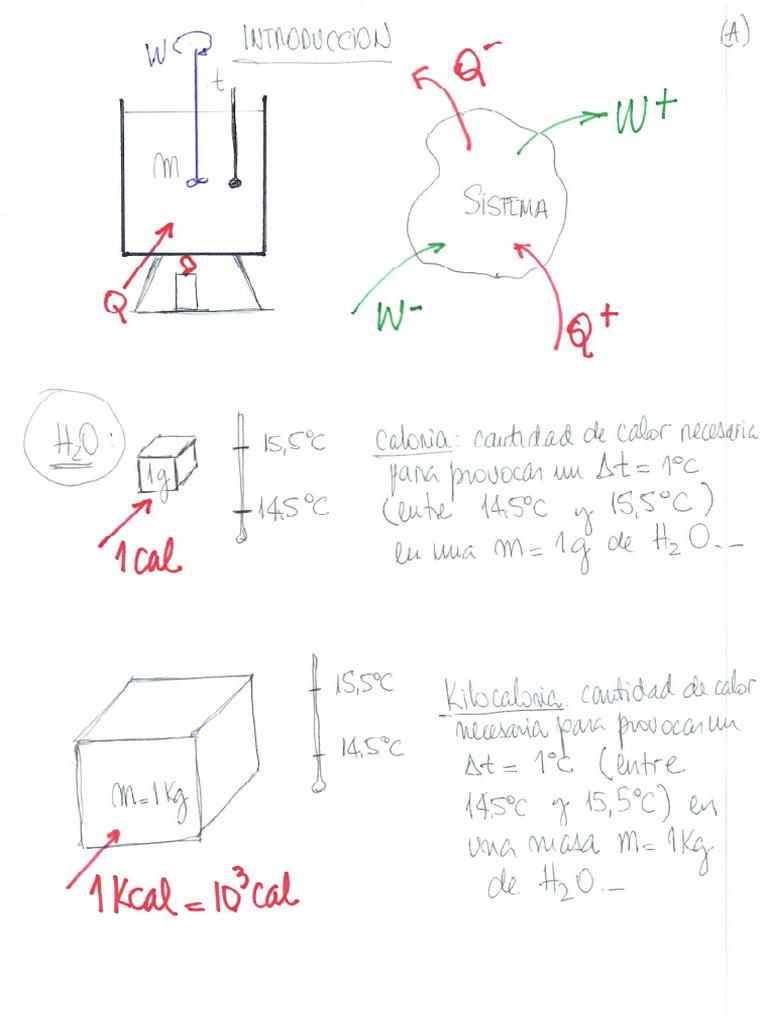 INTRODUCCION
(A)
W
t
m
Q
Q-
W+
SISTEMA
W-
Q+
H₂O:
1g
15,5°C
14,5°C
1 cal
Caloria: cantidad de calor necesaria
para provocar un Δt = 1°C
(entre 14,5°C y 15,5°C)
en una m = 1g de H₂O._
m = 1 Kg
15,5°C
14,5°C
1 Kcal = 10³ cal
Kilocaloria: cantidad de calor
necesaria para provocar un
Δt = 1°C (entre
14,5°C y 15,5°C) en
una masa m = 1 Kg
de H₂O._